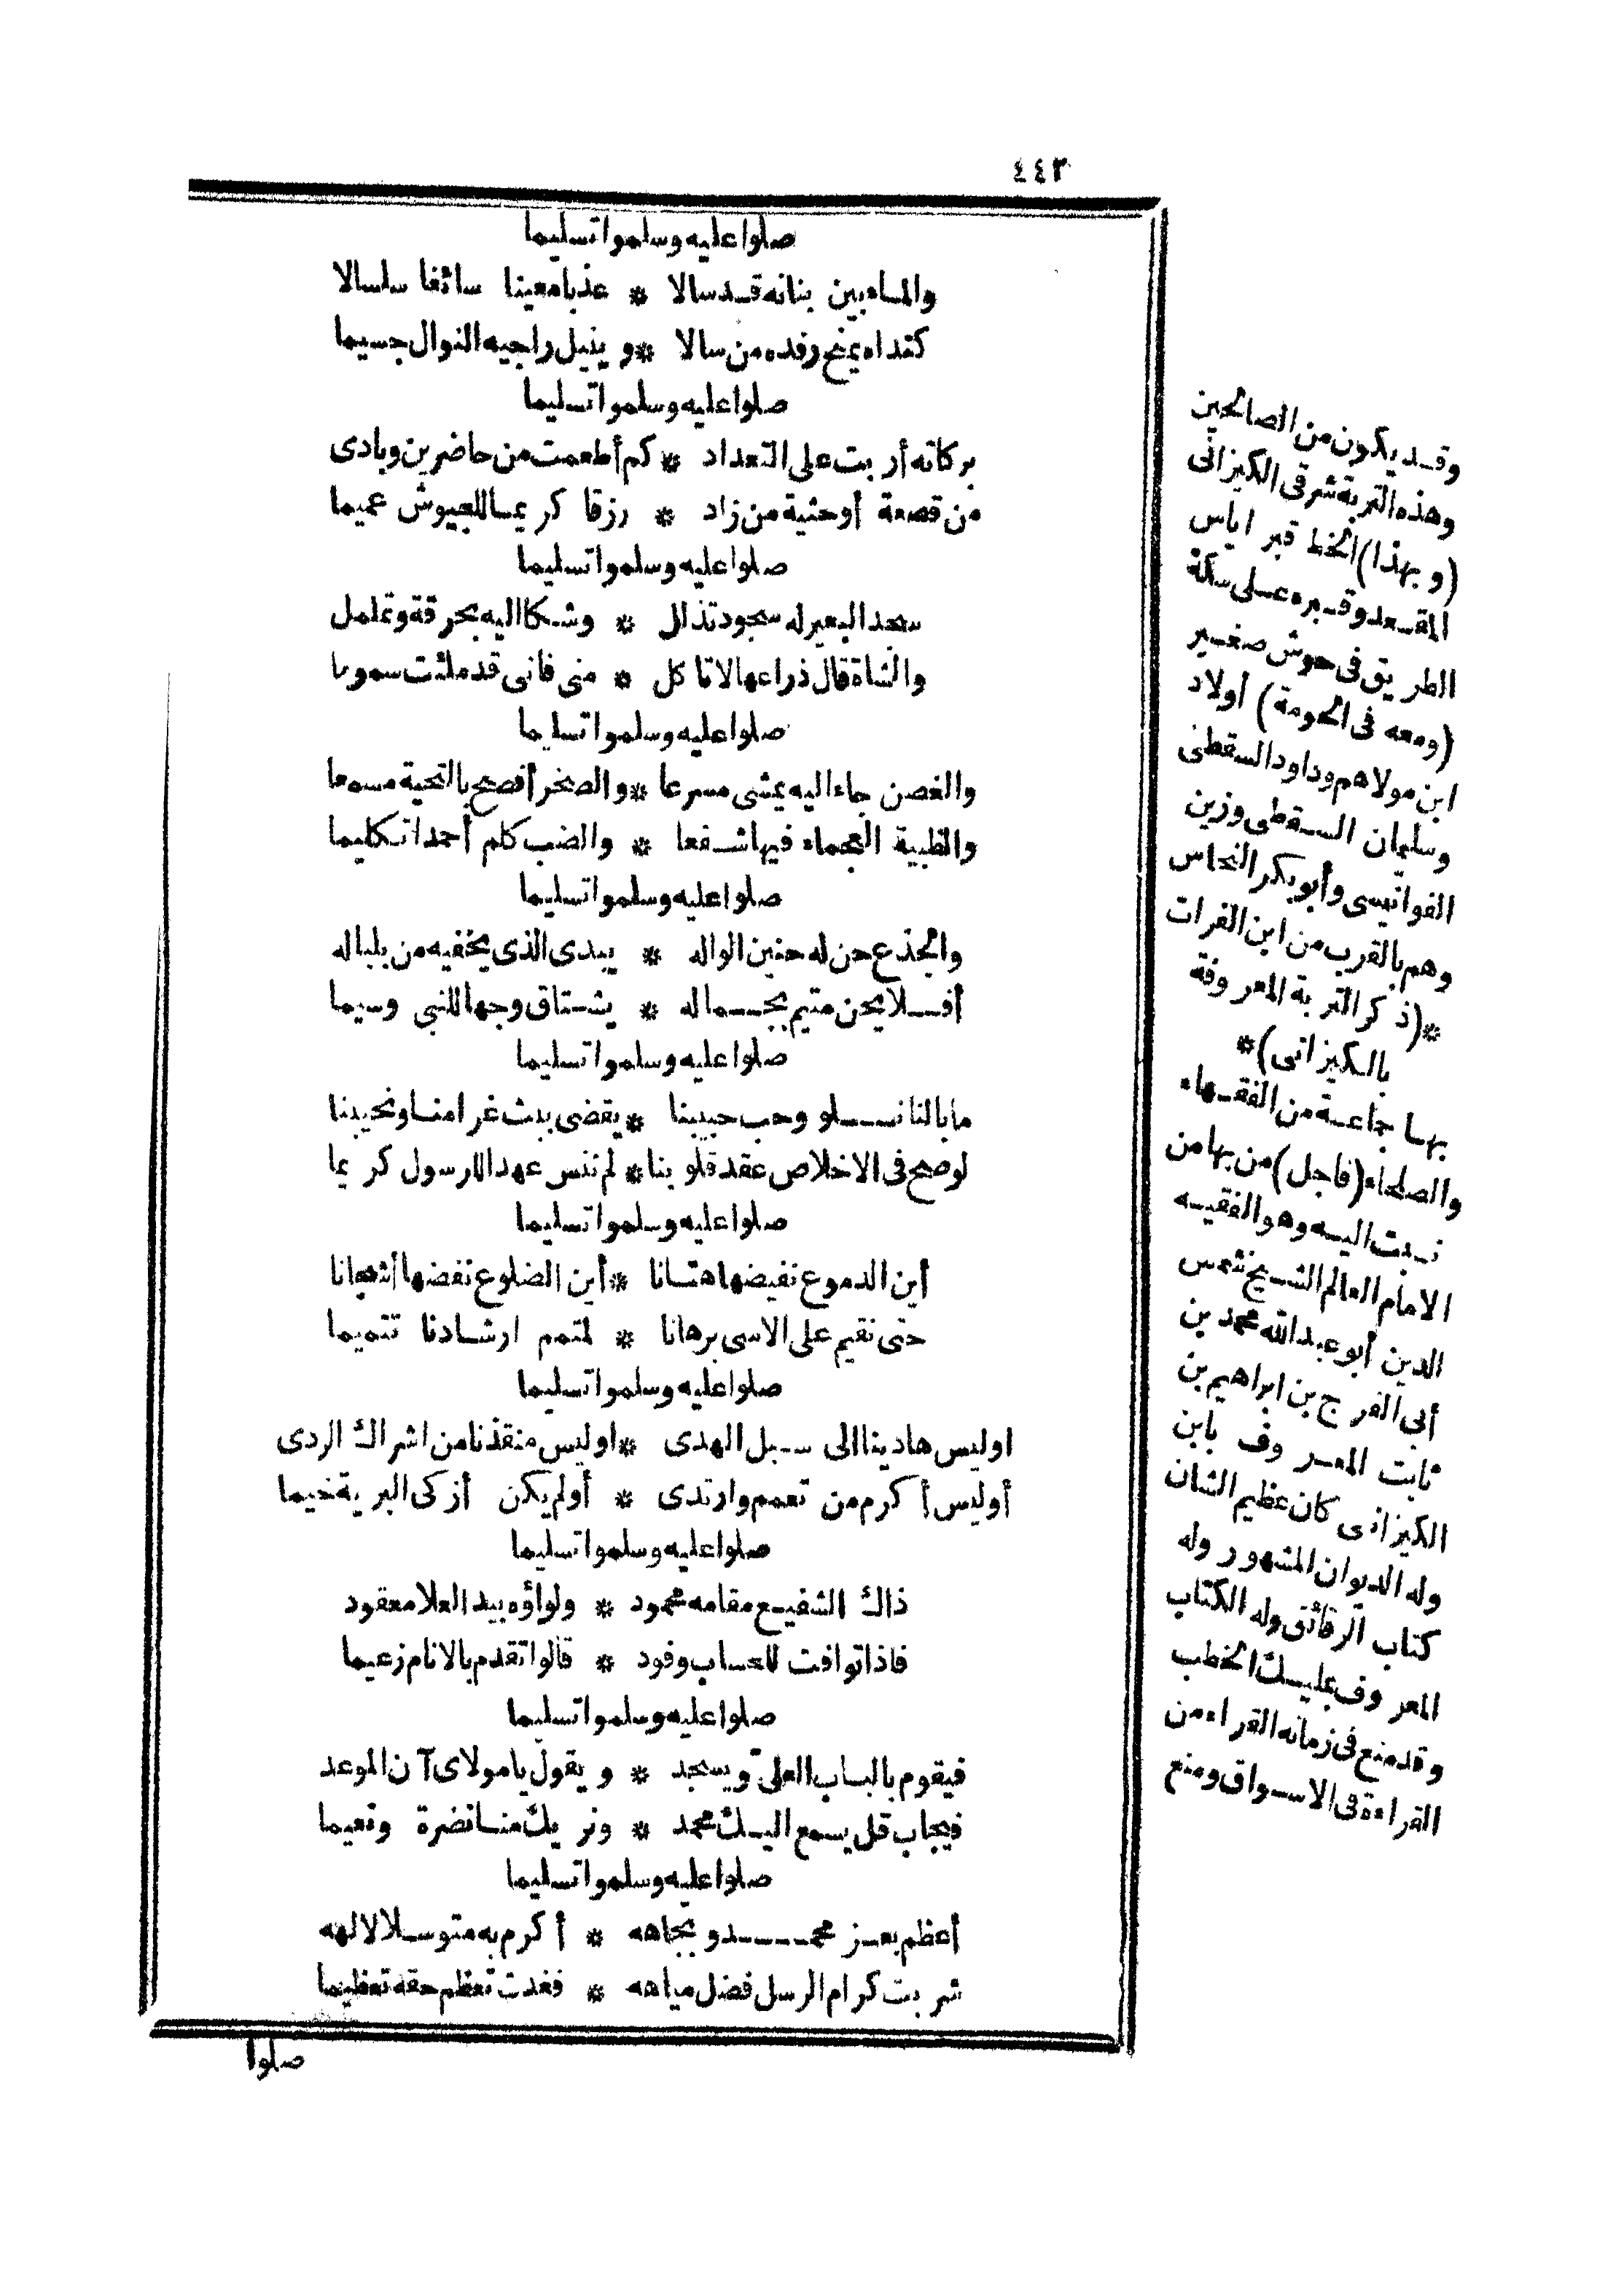 ٤٤٣
صلوا عليه وسلموا تسليما
والماء بين بنانه قد سالا * عذبا معينا سائغا سلسالا
كنداه يمنح رفده من سالا * وينيل راجيه النوال جسيما
صلوا عليه وسلموا تسليما
بركاته أربت على التعداد * كم أطعمت من حاضرين وبادى
من قصعة أو حثية من زاد * رزقا كريما للجيوش عميما
صلوا عليه وسلموا تسليما
سجد البعير له سجود تذلل * وشكا اليه بحرقة وتململ
والشاة قال ذراعها لا تاكل * منى فانى قد ملئت سموما
صلوا عليه وسلموا تسليما
والغصن جاء اليه يمشى مسرعا * والصخر أفصح بالتحية مسمعا
والظبية العجماء فيها شفعا * والضب كلم أحمدا تكليما
صلوا عليه وسلموا تسليما
والجذع حن له حنين الواله * يبدى الذى يخفيه من بلباله
أفلا يحن متيم بجماله * يشتاق وجها للنبى وسيما
صلوا عليه وسلموا تسليما
ما بالنا نسلو وحب حبيبنا * يقضى ببث غرامنا ونحيبنا
لو صح فى الاخلاص عقد قلوبنا * لم ننس عهدا للرسول كريما
صلوا عليه وسلموا تسليما
أين الدموع نفيضها هتانا * أين الضلوع نفضها أشجانا
حتى نقيم على الاسى برهانا * لمتمم ارشادنا تتميما
صلوا عليه وسلموا تسليما
اوليس هادينا الى سبل الهدى * اوليس منقذنا من اشراك الردى
أوليس أكرم من تعمم وارتدى * أولم يكن أزكى البرية خيما
صلوا عليه وسلموا تسليما
ذاك الشفيع مقامه محمود * ولواؤه بيد العلا معقود
فاذا توافت للحساب وفود * قالوا تقدم بالانام زعيما
صلوا عليه وسلموا تسليما
فيقوم بالباب العلىّ ويسجد * ويقول يا مولاى آن الموعد
فيجاب قل يسمع اليك محمد * ونريك منا نضرة ونعيما
صلوا عليه وسلموا تسليما
أعظم بعز محمد وبجاهه * أكرم به متوسلا لالهه
شربت كرام الرسل فضل مياهه * فغدت تعظم حقه تعظيما
صلوا
وقد يكون من الصالحين
وهذه التربة شرقى الكيزانى
(وبهذا) الخط قبر اياس
المقعد وقبره على سكة
الطريق فى حوش صغير
(ومعه فى الحومة) أولاد
ابن مولاهم وداود السقطى
وسليمان السقطى وزين
الفوانيسى وأبو بكر النحاس
وهم بالقرب من ابن الفرات
*(ذكر التربة المعروفة
بالكيزانى)*
بها جماعة من الفقهاء
والصلحاء (فاجل) من بها من
نسبت اليه وهو الفقيه
الامام العالم الشيخ شمس
الدين أبو عبد الله محمد بن
أبى الفرج بن ابراهيم بن
ثابت المعروف بابن
الكيزانى كان عظيم الشان
وله الديوان المشهور وله
كتاب الرقائق وله الكتاب
المعروف بمليك الخطب
وقد منع فى زمانه القراء من
القراءة فى الاسواق ومنع